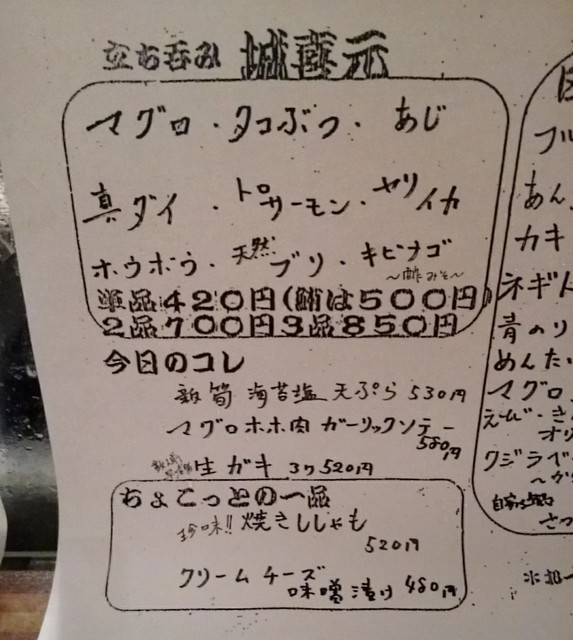 立ち呑み 城蔵元
マグロ・タコぶつ・あじ
真ダイ・トロサーモン・ヤリイカ
ホウボウ・天然ブリ・キビナゴ
〜酢みそ〜
単品420円(鮪は500円)
2品700円3品850円
今日のコレ
新筍 海苔塩 天ぷら 530円
マグロホホ肉 ガーリックソテー
580円
生ガキ 3ケ520円
ちょこっとの一品
珍味!! 焼きししゃも
520円
クリームチーズ
味噌漬け 480円
フル
あん
カキ
ネギト
青のり
めんたい
マグロ
えび・き
オリ
クジラベ
〜か
さつ